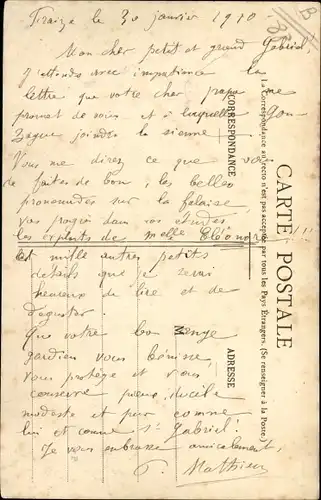 Fraize le 30 janvier 1910
Mon cher petit et grand Gabriel
J'attends avec impatience la
lettre que votre cher papa me
promet de vous et à laquelle Gon
zague joindra la sienne
Vous me direz ce que vous
faites de bon, les belles
promenades sur la falaise
vos progrès dans vos études
les exploits de Melle Eléonore
Et mille autres petits
détails que je serai
heureux de lire et de
déguster.
Que votre bon ange
gardien vous bénisse
vous protège et vous
conserve pieux docile
modeste et pur comme
lui et comme St Gabriel!
Je vous embrasse amicalement,
Mathieu
CARTE POSTALE
La Correspondance au recto n'est pas acceptée par tous les Pays Étrangers. (Se renseigner à la Poste.)
CORRESPONDANCE
ADRESSE